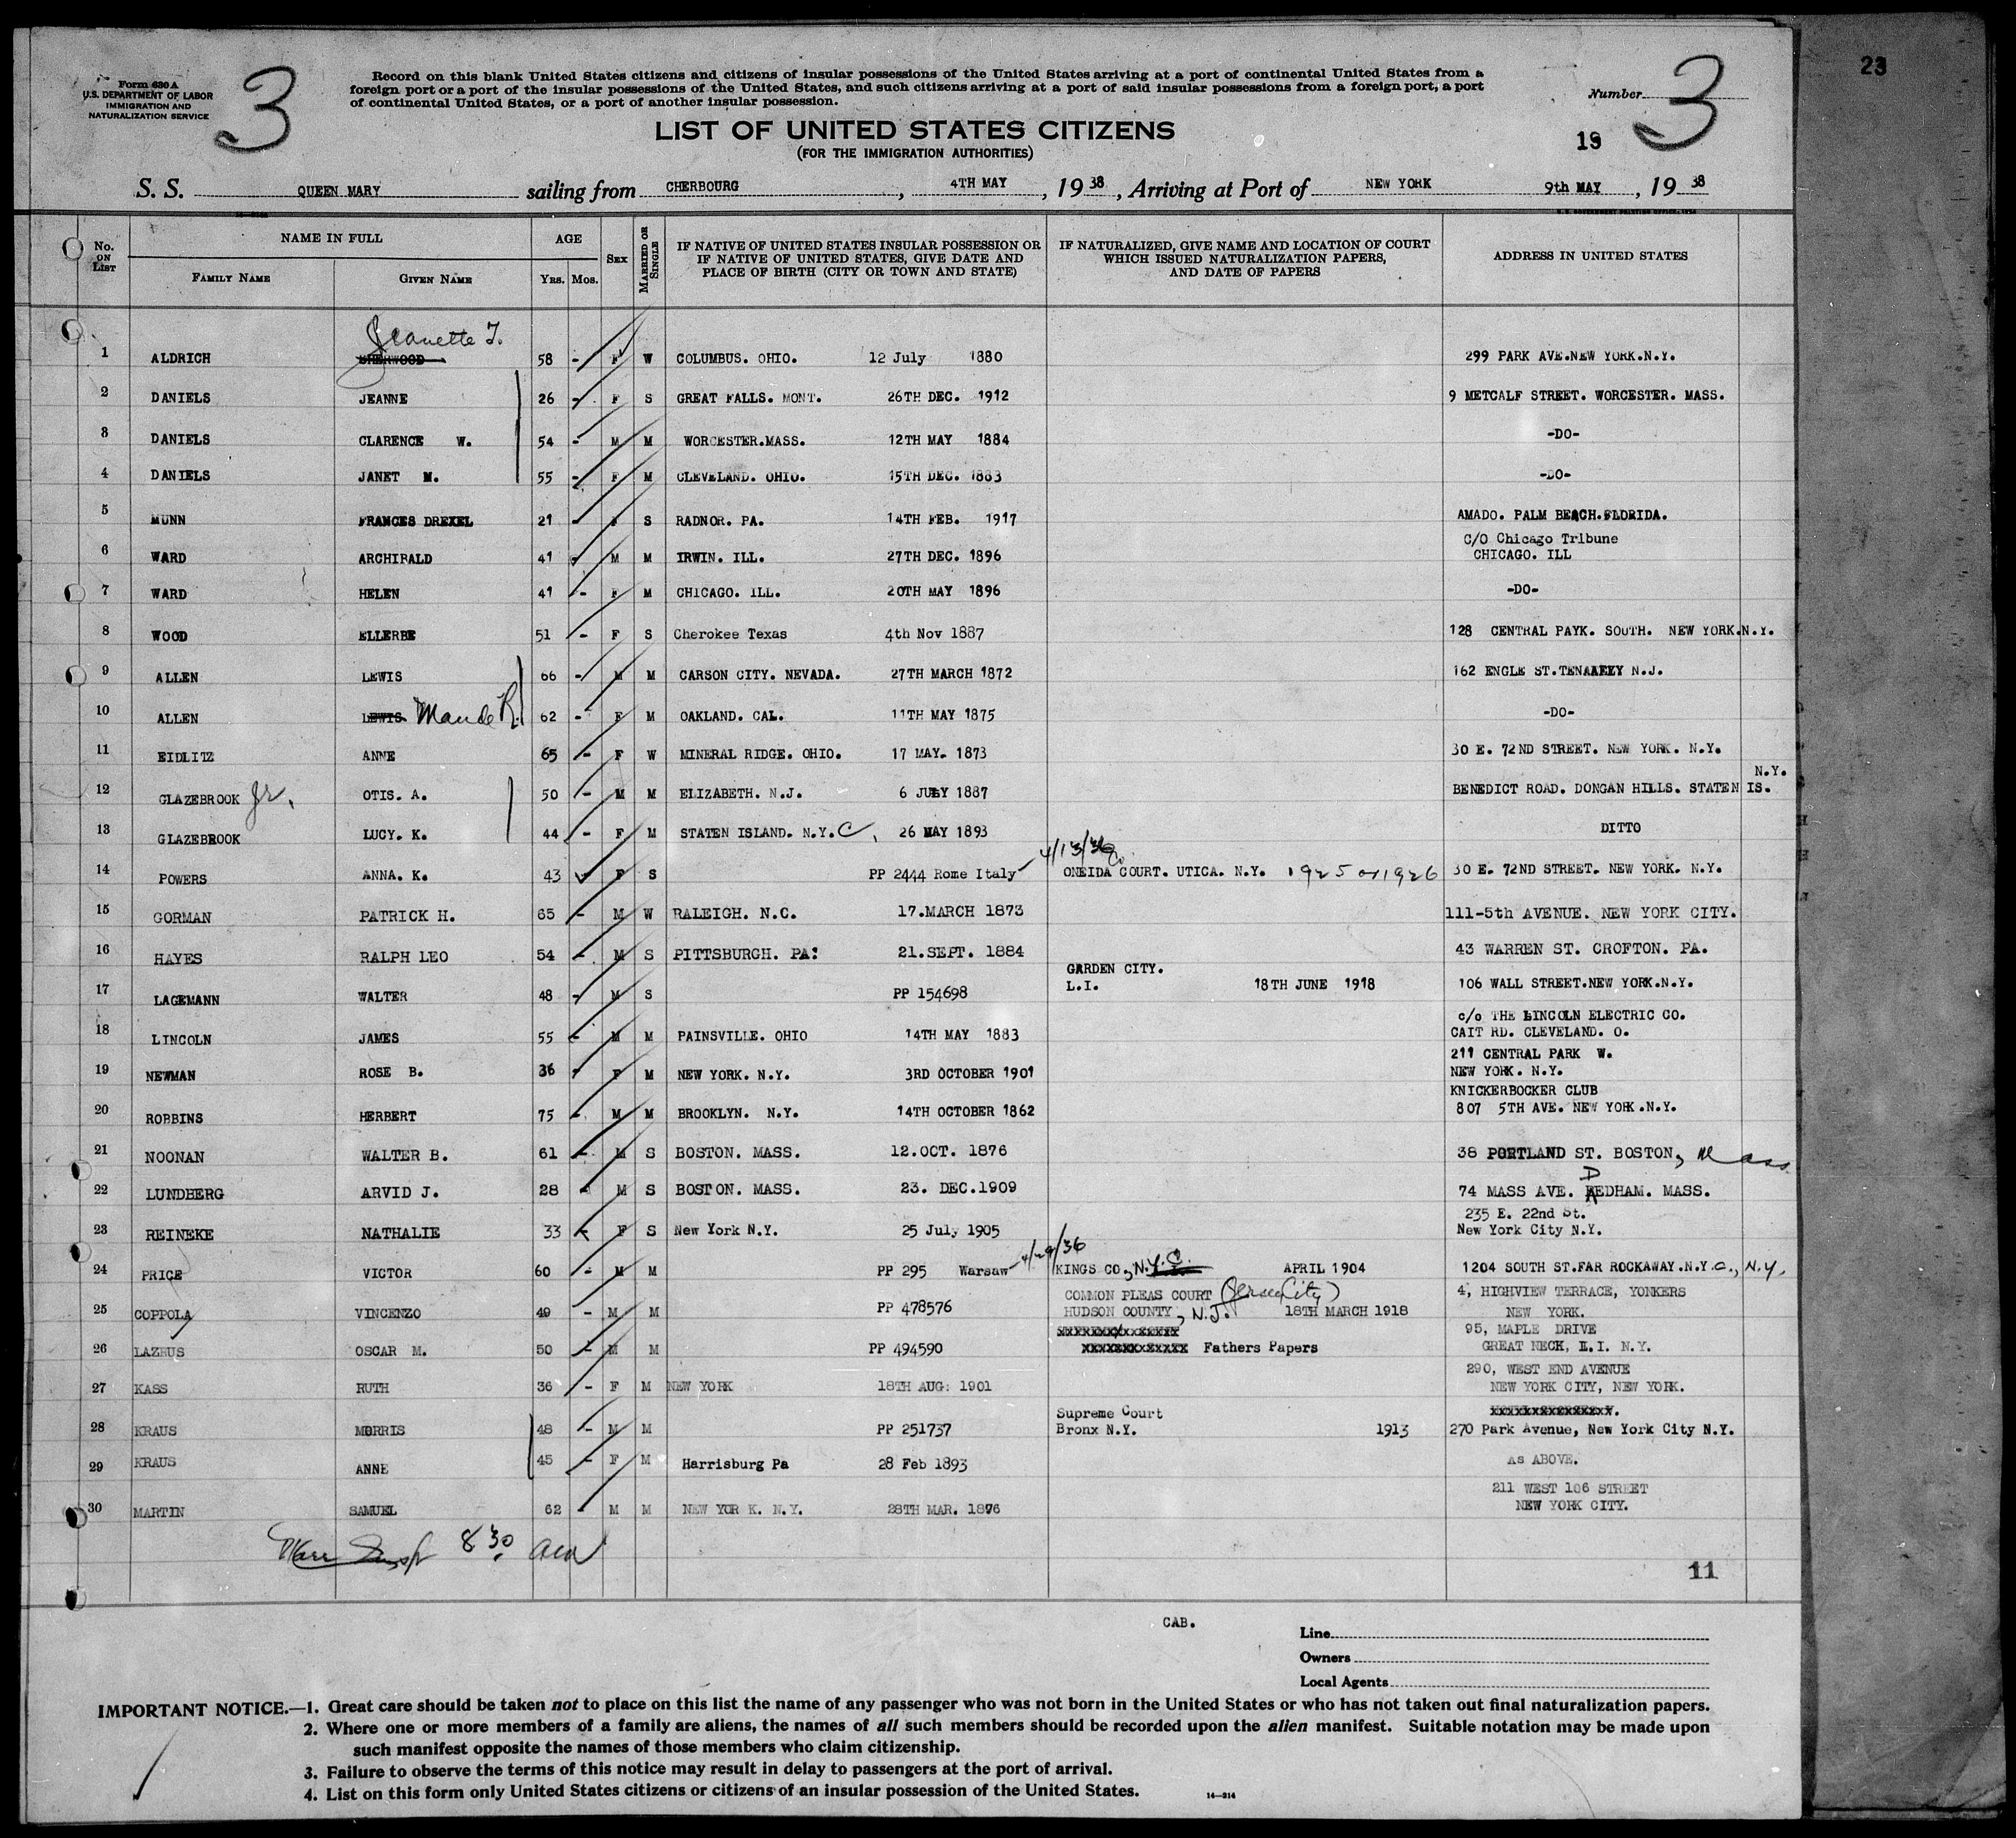 23
Form 630 A
U.S. DEPARTMENT OF LABOR
IMMIGRATION AND
NATURALIZATION SERVICE
3
Record on this blank United States citizens and citizens of insular possessions of the United States arriving at a port of continental United States from a
foreign port or a port of the insular possessions of the United States, and such citizens arriving at a port of said insular possessions from a foreign port, a port
of continental United States, or a port of another insular possession.
Number 3
LIST OF UNITED STATES CITIZENS
19
(FOR THE IMMIGRATION AUTHORITIES)
S. S. QUEEN MARY sailing from CHERBOURG, 4TH MAY, 1938, Arriving at Port of NEW YORK 9th MAY, 1938
No. ON LIST
NAME IN FULL
FAMILY NAME
GIVEN NAME
AGE
YRS. MOS.
SEX
MARRIED OR SINGLE
IF NATIVE OF UNITED STATES INSULAR POSSESSION OR
IF NATIVE OF UNITED STATES, GIVE DATE AND
PLACE OF BIRTH (CITY OR TOWN AND STATE)
IF NATURALIZED, GIVE NAME AND LOCATION OF COURT
WHICH ISSUED NATURALIZATION PAPERS,
AND DATE OF PAPERS
ADDRESS IN UNITED STATES
Jeanette T.
1 ALDRICH SHERWOOD 58 - F W COLUMBUS. OHIO. 12 July 1880 299 PARK AVE.NEW YORK.N.Y.
2 DANIELS JEANNE 26 - F S GREAT FALLS. MONT. 26TH DEC. 1912 9 METCALF STREET. WORCESTER. MASS.
3 DANIELS CLARENCE W. 54 - M M WORCESTER.MASS. 12TH MAY 1884 -DO-
4 DANIELS JANET M. 55 - F M CLEVELAND. OHIO. 15TH DEC. 1883 -DO-
5 MUNN FRANCES DREXEL 21 - F S RADNOR. PA. 14TH FEB. 1917 AMADO. PALM BEACH.FLORIDA.
C/O Chicago Tribune
6 WARD ARCHIBALD 41 - M M IRWIN. ILL. 27TH DEC. 1896 CHICAGO. ILL
7 WARD HELEN 41 - F M CHICAGO. ILL. 20TH MAY 1896 -DO-
8 WOOD ELLERBE 51 - F S Cherokee Texas 4th Nov 1887 128 CENTRAL PAYK. SOUTH. NEW YORK.N.Y.
9 ALLEN LEWIS 66 - M M CARSON CITY. NEVADA. 27TH MARCH 1872 162 ENGLE ST.TENAAFLY N.J.
10 ALLEN LEWIS Maude R. 62 - F M OAKLAND. CAL. 11TH MAY 1875 -DO-
11 EIDLITZ ANNE 65 - F W MINERAL RIDGE. OHIO. 17 MAY. 1873 30 E. 72ND STREET. NEW YORK. N.Y.
N.Y.
12 GLAZEBROOK Jr. OTIS. A. 50 - M M ELIZABETH. N.J. 6 JULY 1887 BENEDICT ROAD. DONGAN HILLS. STATEN IS.
13 GLAZEBROOK LUCY. K. 44 - F M STATEN ISLAND. N.Y.C. 26 MAY 1893 DITTO
4/13/36
Co
14 POWERS ANNA. K. 43 F S PP 2444 Rome Italy ONEIDA COURT. UTICA. N.Y. 1925 or 1926 30 E. 72ND STREET. NEW YORK. N.Y.
15 GORMAN PATRICK H. 65 - M W RALEIGH. N.C. 17.MARCH 1873 111-5th AVENUE. NEW YORK CITY.
16 HAYES RALPH LEO 54 - M S PITTSBURGH. PA: 21.SEPT. 1884 43 WARREN ST. CROFTON. PA.
GARDEN CITY.
17 LAGEMANN WALTER 48 - M S PP 154698 L.I. 18TH JUNE 1918 106 WALL STREET.NEW YORK.N.Y.
c/o THE LINCOLN ELECTRIC CO.
18 LINCOLN JAMES 55 - M M PAINSVILLE. OHIO 14TH MAY 1883 CAIT RD. CLEVELAND. O.
211 CENTRAL PARK W.
19 NEWMAN ROSE B. 36 - F M NEW YORK. N.Y. 3RD OCTOBER 1901 NEW YORK. N.Y.
KNICKERBOCKER CLUB
20 ROBBINS HERBERT 75 - M M BROOKLYN. N.Y. 14TH OCTOBER 1862 807 5TH AVE. NEW YORK.N.Y.
21 NOONAN WALTER B. 61 - M S BOSTON. MASS. 12.OCT. 1876 38 PORTLAND ST. BOSTON, Mass
22 LUNDBERG ARVID J. 28 - M S BOSTON. MASS. 23. DEC.1909 74 MASS AVE. DEDHAM. MASS.
235 E. 22nd St.
23 REINEKE NATHALIE 33 - F S New York N.Y. 25 July 1905 New York City N.Y.
4/29/36
24 PRICE VICTOR 60 - M M PP 295 Warsaw KINGS CO, N.Y.C. APRIL 1904 1204 SOUTH ST.FAR ROCKAWAY.N.Y.C., N.Y.
COMMON PLEAS COURT (Jersey City) 4, HIGHVIEW TERRACE, YONKERS
25 COPPOLA VINCENZO 49 - M M PP 478576 HUDSON COUNTY, N.J. 18TH MARCH 1918 NEW YORK.
95, MAPLE DRIVE
26 LAZRUS OSCAR M. 50 - M M PP 494590 Fathers Papers GREAT NECK, L.I. N.Y.
290, WEST END AVENUE
27 KASS RUTH 36 - F M NEW YORK 18TH AUG: 1901 NEW YORK CITY, NEW YORK.
Supreme Court
28 KRAUS MORRIS 48 - M M PP 251737 Bronx N.Y. 1913 270 Park Avenue, New York City N.Y.
29 KRAUS ANNE 45 - F M Harrisburg Pa 28 Feb 1893 As ABOVE.
211 WEST 106 STREET
30 MARTIN SAMUEL 62 - M M NEW YOR K. N.Y. 28TH MAR. 1876 NEW YORK CITY.
8 30
11
CAB.
Line
Owners
Local Agents
IMPORTANT NOTICE.—1. Great care should be taken not to place on this list the name of any passenger who was not born in the United States or who has not taken out final naturalization papers.
2. Where one or more members of a family are aliens, the names of all such members should be recorded upon the alien manifest. Suitable notation may be made upon
such manifest opposite the names of those members who claim citizenship.
3. Failure to observe the terms of this notice may result in delay to passengers at the port of arrival.
4. List on this form only United States citizens or citizens of an insular possession of the United States.
14—214